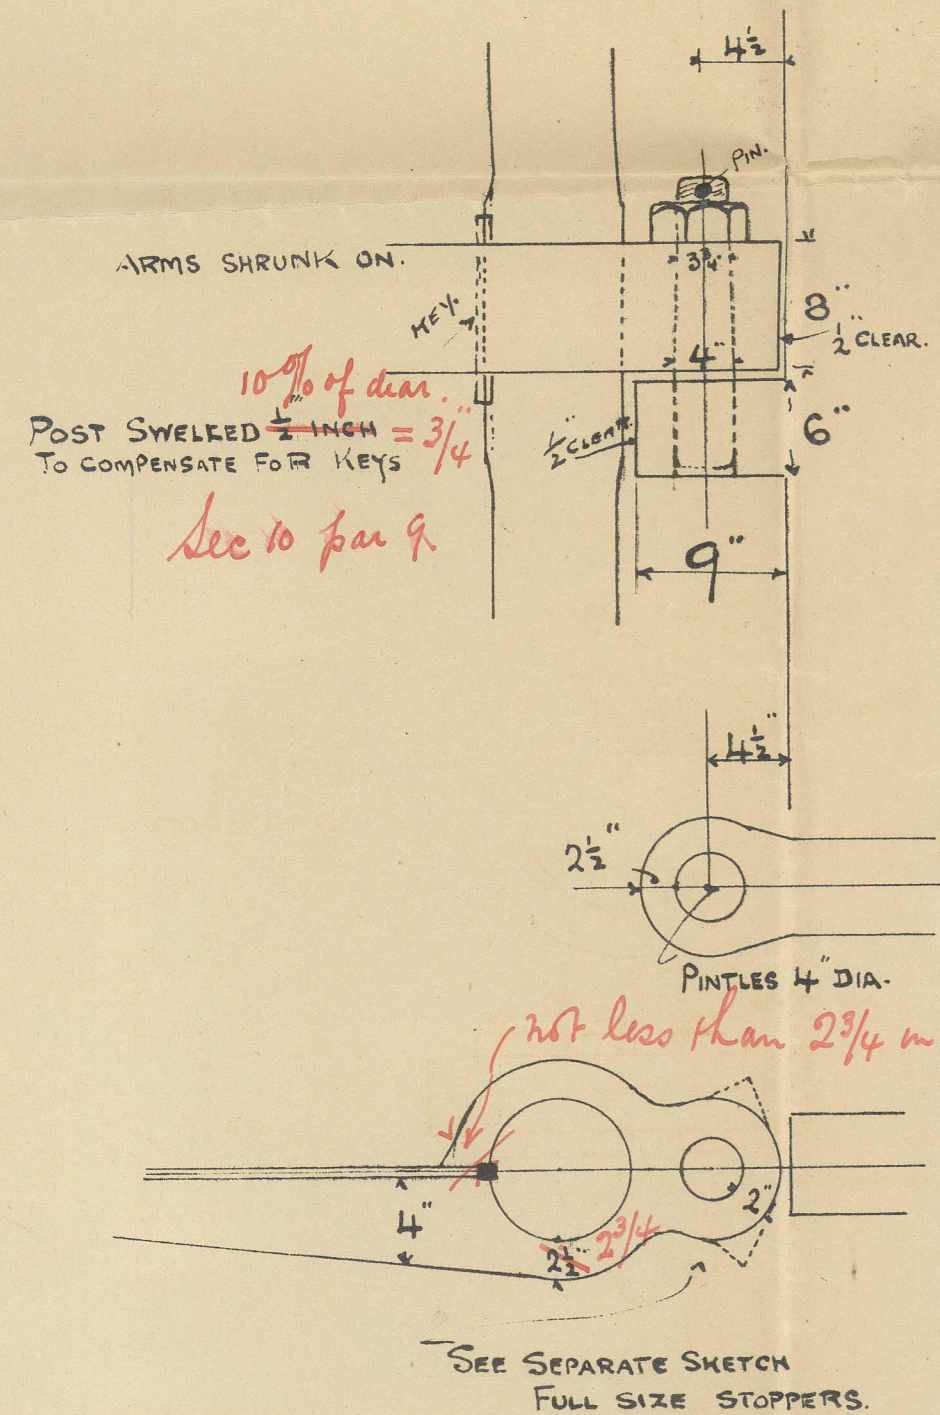 4½
PIN.
ARMS SHRUNK ON.
3¾"
8"
KEY.
½" CLEAR.
4"
10% of diar.
POST SWELLED ½" INCH = 3/4"
TO COMPENSATE FOR KEYS
6"
½" CLEAR.
Sec 10 par 9.
9"
4½"
2½"
PINTLES 4" DIA.
not less than 2¾ in
4"
2"
2½" 2¾
SEE SEPARATE SKETCH
FULL SIZE STOPPERS.